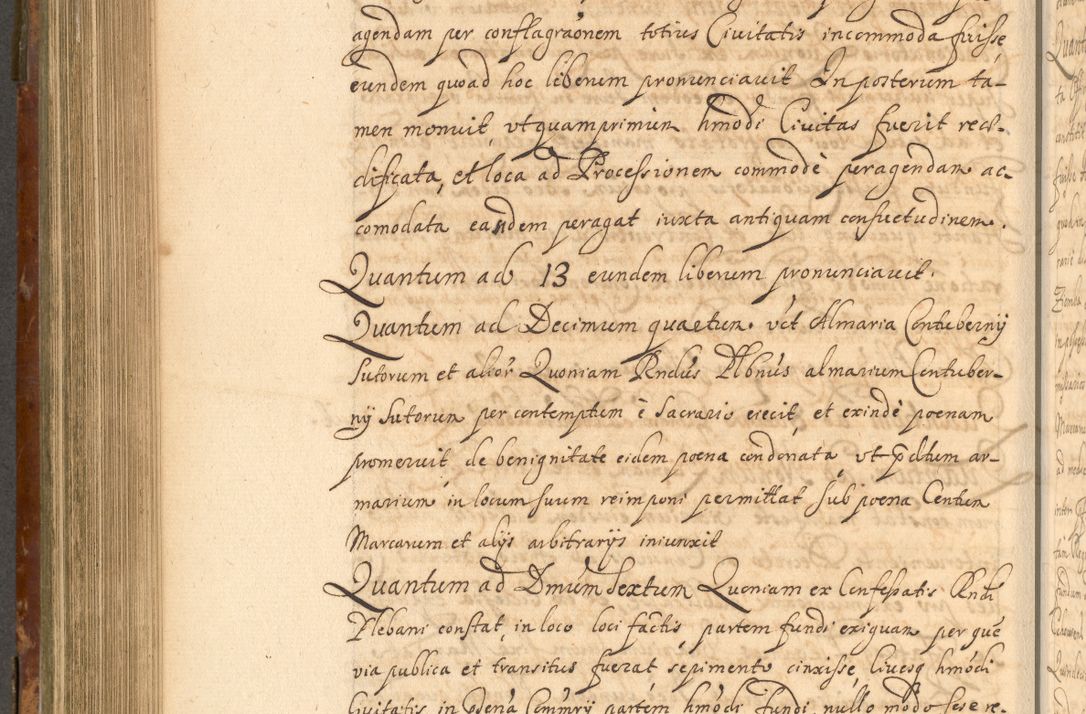 agendam per conflagraonem totius Ciuitatis incommoda fuisse
eundem quoad hoc liberum pronunciauit In posterum ta-
men monuit vt quamprimum hmodi Ciuitas fuerit reae-
dificata, et loca ad Processionem commodè peragendam ac-
comodata eandem peragat iuxta antiquam consuetudinem.
Quantum ad 13 eundem liberum pronunciauit.
Quantum ad Decimum quartum. vct Almaria Contubernij
Sutorum et alior Quoniam Rndus Plbnus almarium Contuber-
nij Sutorum per contemptum è Sacrario eiecit, et exindè poenam
promeruit, de benignitate eidem poena condonata, vt pdctum ar-
marium in locum suum reimponi permittat sub poena Centum
Marcarum et alijs arbitrarijs iniunxit
Quantum ad Dmum Sextum Quoniam ex Confessatis Rndi
Plebani constat in loco loci factis partem fundi exiguam per que
via publica et transitus fuerat sepimento cinxisse Ciuesq hmodi
Ciuitatis in partem hmodi fundi nullo modo sese re-